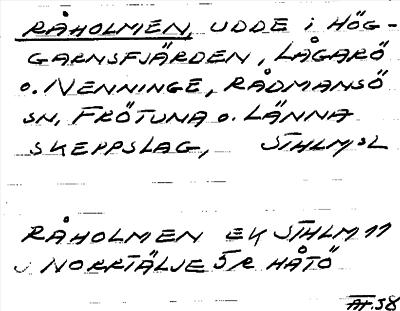 RÅHOLMEN, UDDE i HÖG-
GARNSFJÄRDEN, LÅGARÖ
o. NENNINGE, RÅDMANSÖ
SN, FRÖTUNA o. LÄNNA
SKEPPSLAG, STHLMsL
RÅHOLMEN EK STHLM 11
J NORRTÄLJE 5R HÅTÖ
AT.38